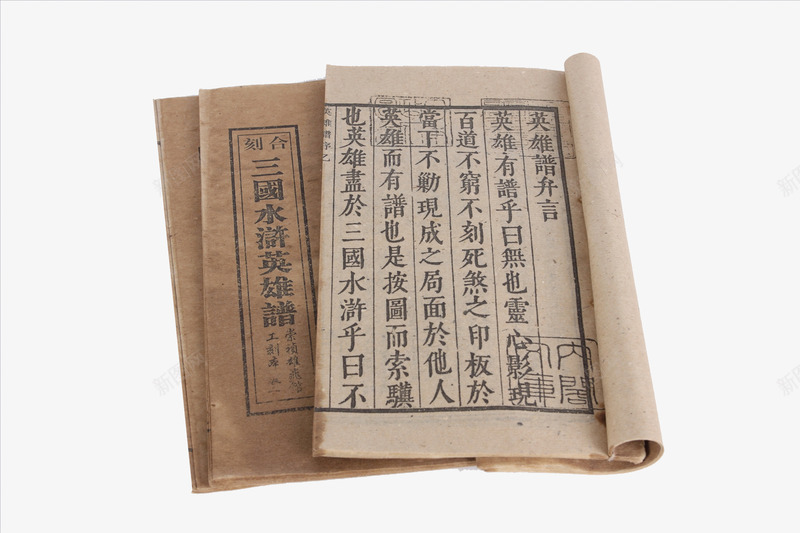 英雄譜弁言
英雄有譜乎曰無也靈心影現
百道不窮不刻死煞之印板於
當下不勦現成之局面於他人
英雄而有譜也是按圖而索驥
也英雄盡於三國水滸乎曰不
英雄譜序之
合刻
三國水滸英雄譜
内閣